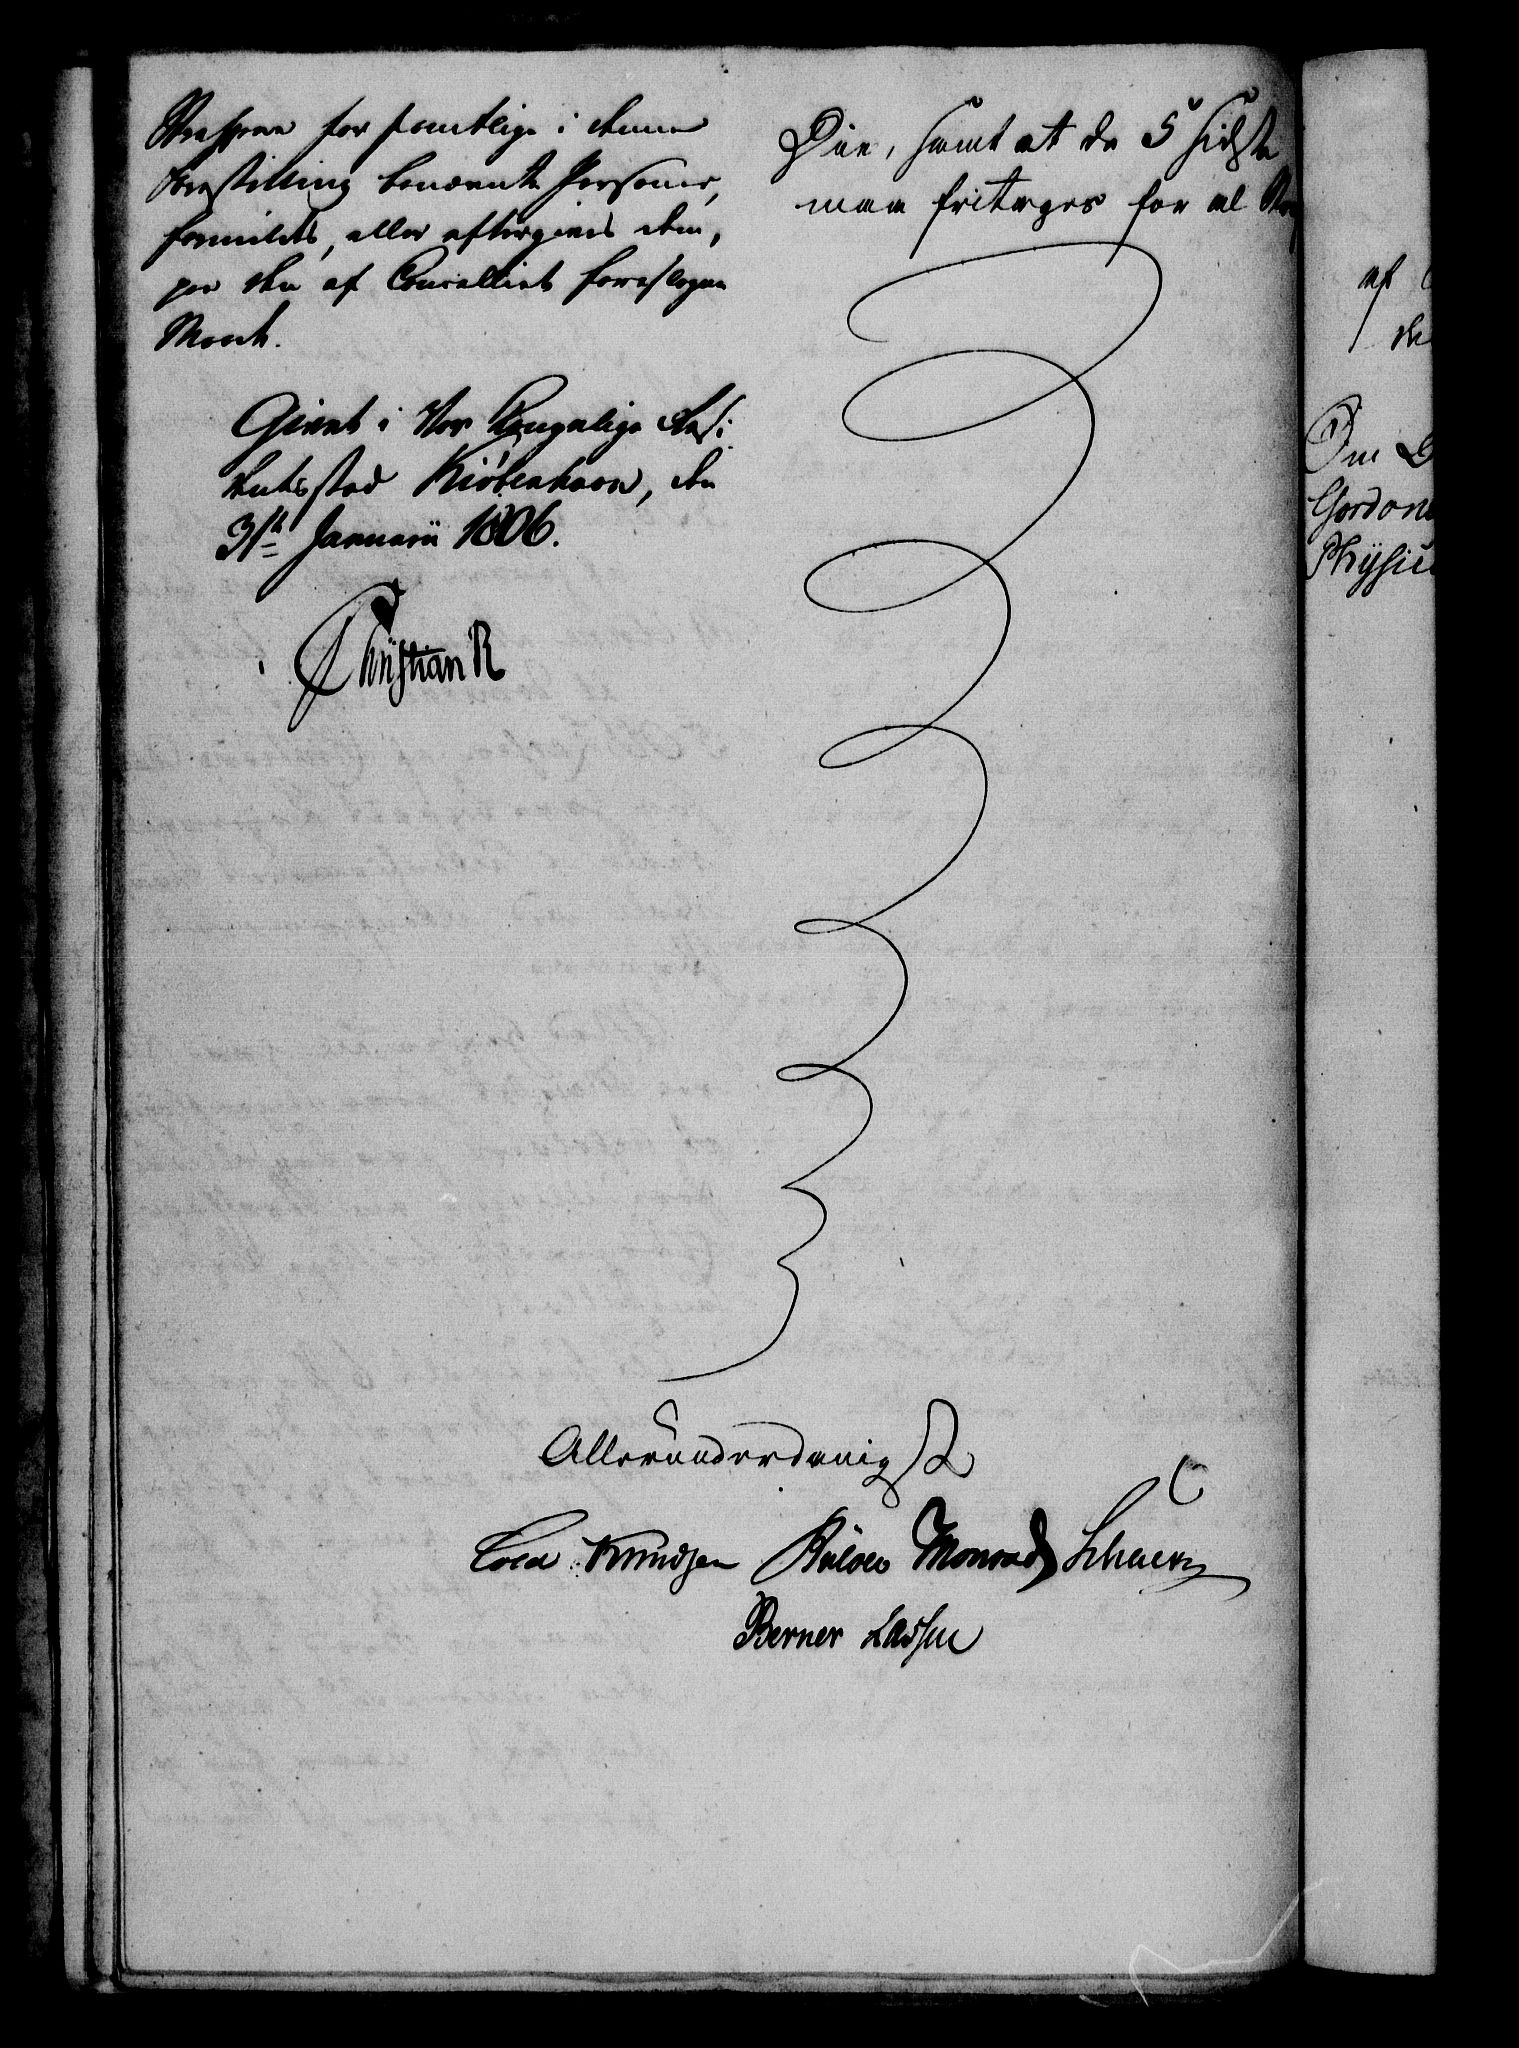 Straffene for samtlige i denne
Forestilling benævnte Personer,
formildes, eller eftergives dem,
paa den af Cancelliet foreslagne
Maade.
Givet i Vor Kongelige Resi
dentsstad Kiöbenhavn, den
31te Januarii 1806.
Christian R
Öie, samt at de 5 sidste
maa fritages for al
Allerunderdanigst
Cold Knudsen Bülow Monrad
Berner Lassen
af
Om
Gordon
Physic